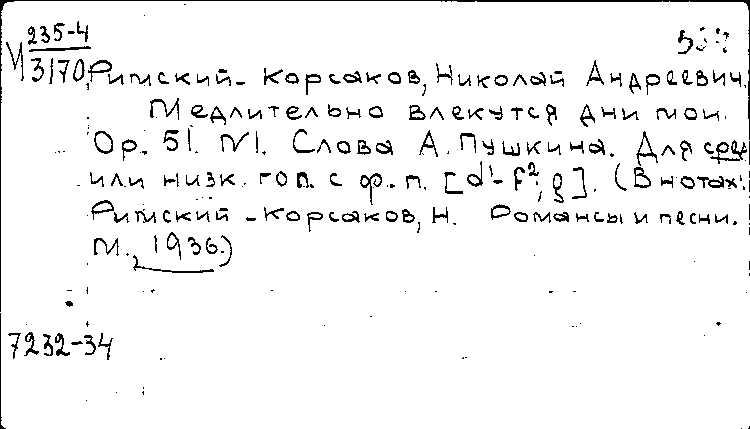 235-4
М 3170
Римский-Корсаков, Николай Андреевич.
Медлительно влекутся дни мои.
Ор. 51. №1. Слова А. Пушкина. Для сред.
или низк. гол. с ф.-п. [d¹-f²; g]. (В нотах:
Римский-Корсаков, Н. Романсы и песни.
М., 1936.)
7232-34